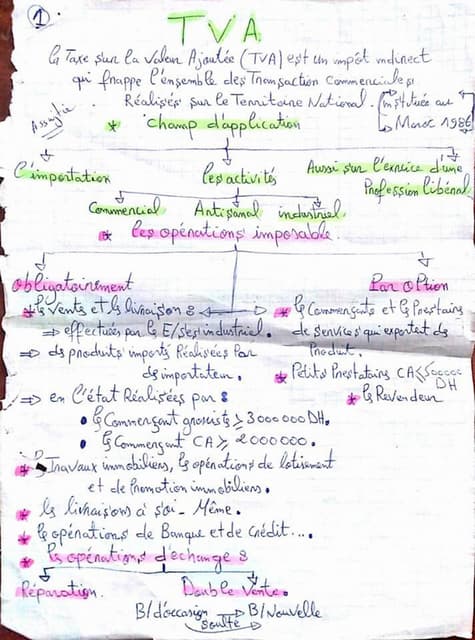 1
TVA
La Taxe sur la Valeur Ajoutée (TVA) est un impôt indirect
qui frappe l'ensemble des Transaction Commerciales
Réalisés sur le Territoire National. (instituée au
Maroc 1986)
Assujettie
* champ d'application
L'importation
les activités
Aussi sur l'exercice d'une
Profession libéral
Commercial Artisanal industriel.
* les opérations imposable.
Obligatoirement
Par Option
* les vents et les livraisons :
⇒ effectuées par les E/ses industriel.
⇒ des produits importés Réalisées Par
des importateur.
⇒ en l'état Réalisées par :
• les Commerçant grossists ≥ 3000000 DH.
• les Commerçant CA ≥ 2000000.
* les Commerçants et les Prestains
de services qui exportent des
Produit.
* Petits Prestatains CA ≤ 500000
DH
* les Revendeur
* les Travaux immobiliers, les opérations de lotisement
et de Promotion immobiliers.
* les livraisons à soi-Même.
* les opérations de Banque et de Crédit....
* les opérations d'échange :
Réparation.
Double Vente.
B/d'occasion → B/Nouvelle
soulte